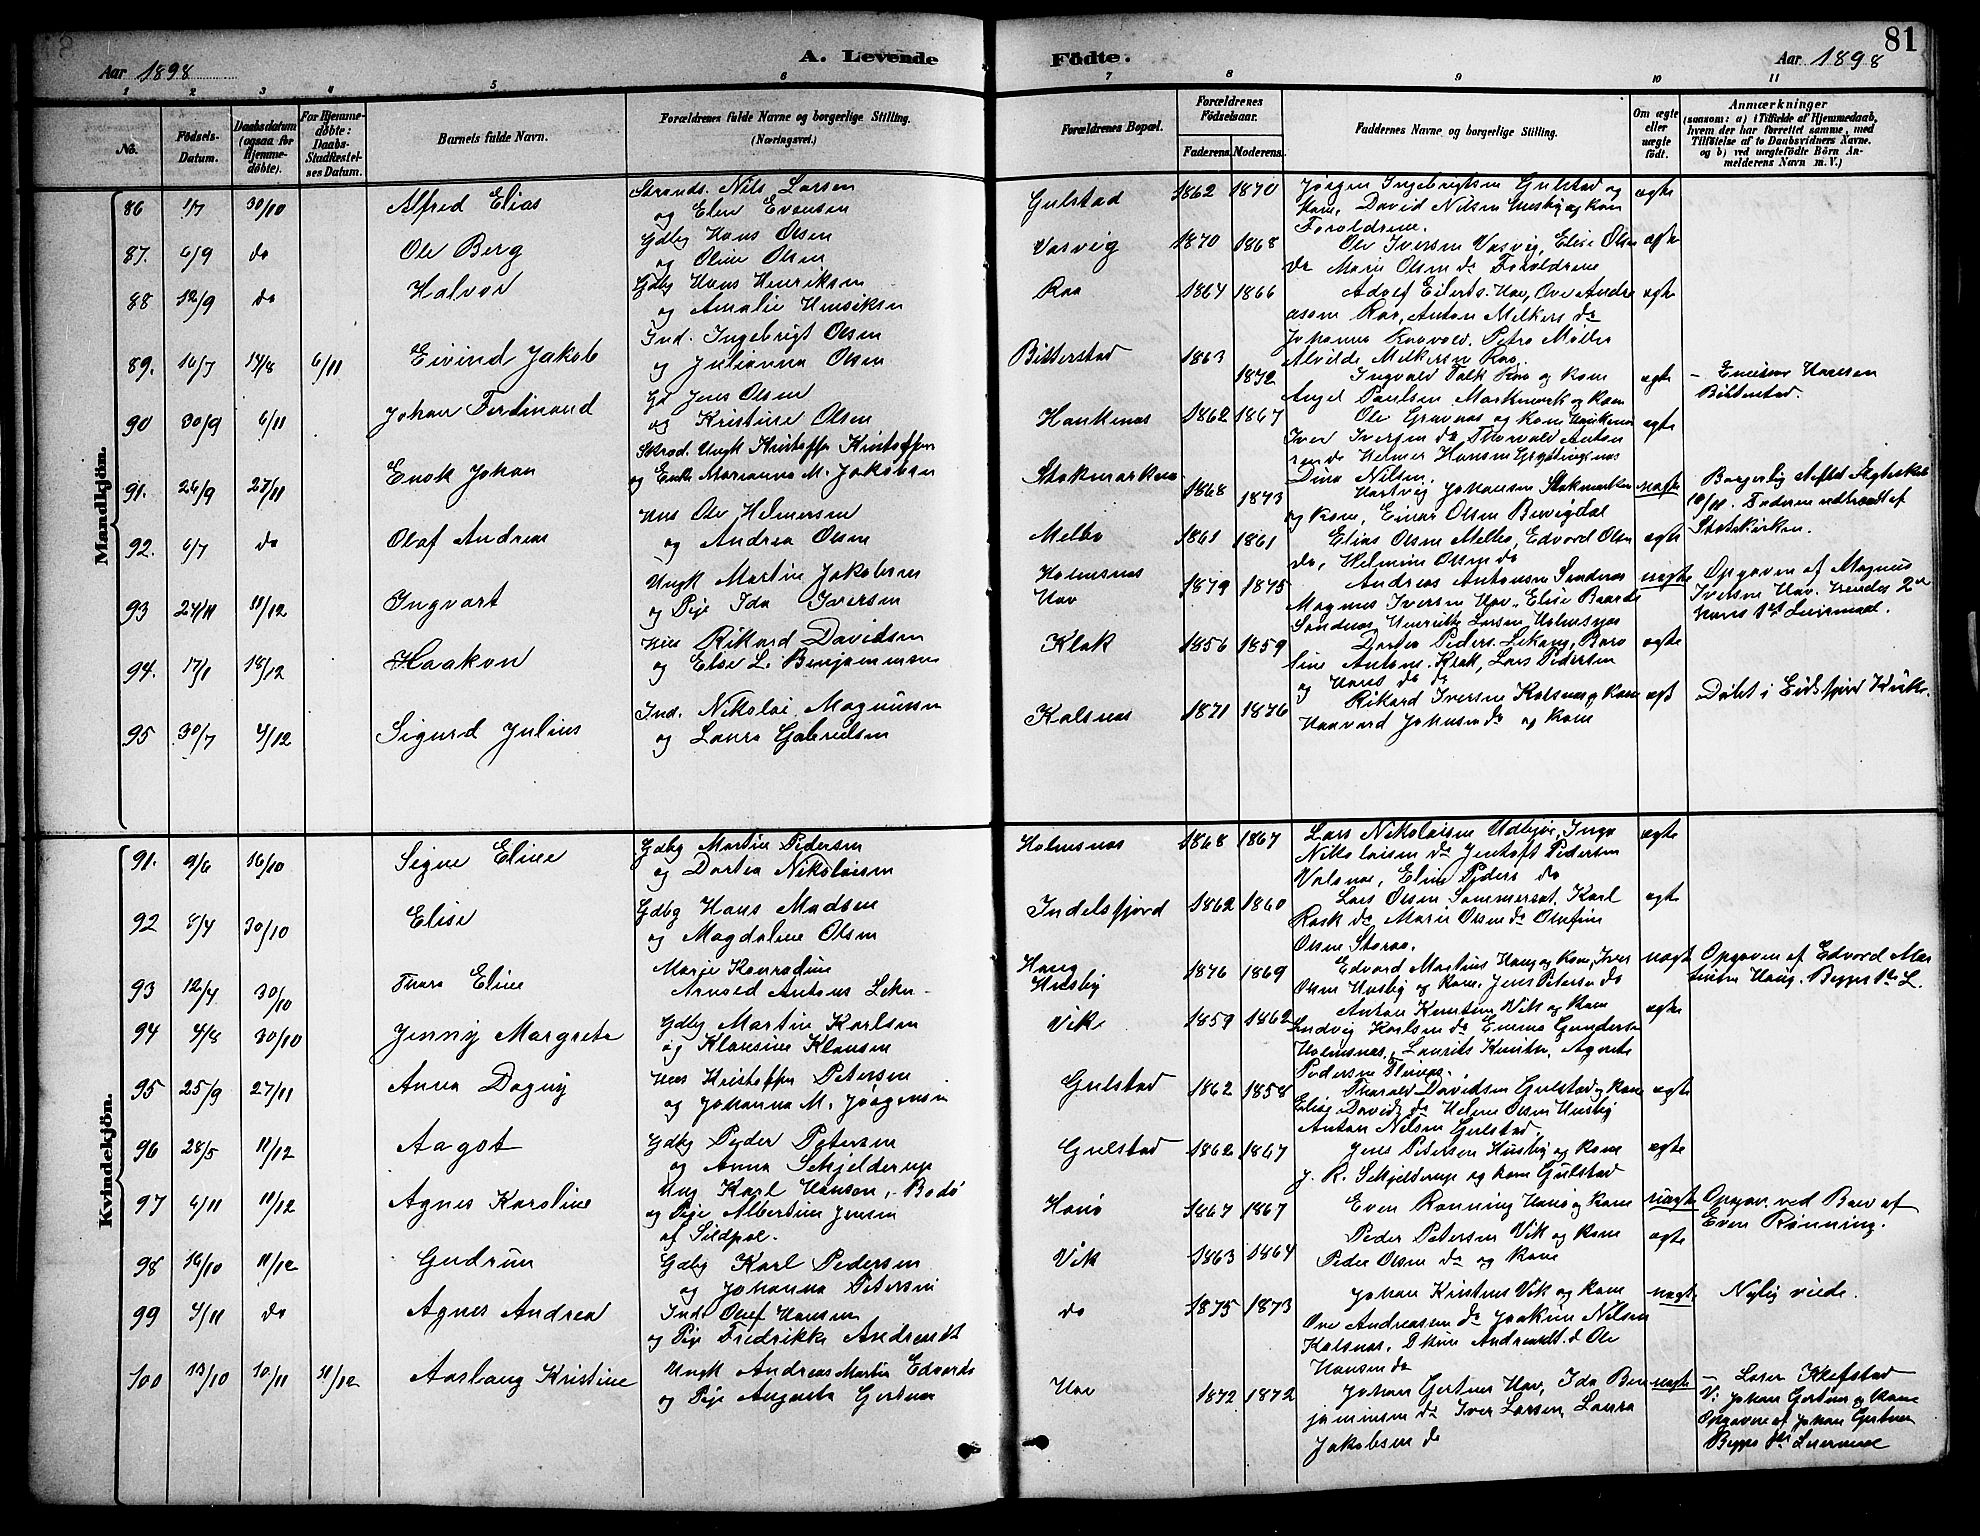 81
Aar 1898
A. Levende Födte.
Aar 1898
1 2 3 4 5 6 7 8 9 10 11
No.
Födsels-Datum.
Daabsdatum (ogsaa for Hjemmedöbte).
For Hjemmedöbte: Daabs-Stadfæstelses Datum.
Barnets fulde Navn.
Forældrenes fulde Navne og borgerlige Stilling. (Næringsvei.)
Forældrenes Bopæl.
Forældrenes Födselsaar.
Faderens. Moderens.
Faddernes Navne og borgerlige Stilling.
Om ægte eller uægte födt.
Anmærkninger (saasom: a) i Tilfælde af Hjemmedaab, hvem der har forrettet samme, med Tilföielse af to Daabsvidners Navne. og b) ved uægtefödte Börn Anmelderens Navn m. V.)
Mandkjön.
86 1/7 30/10 Alfred Elias
Strands. Nils Larsen
og Elen Evensen
Gulstad 1862 1870
Jørgen Ingebrigtsen Gulstad og
Kone, David Nilsen Husby og Kon
Foreldrene.
ægte
87. 6/9 do Ole Berg
Gdbg Hans Olsen
og Oline Olsen
Vasvig 1870 1868
Ole Iversen Vasvig, Elise Olsen
do Marie Olsen do Foreldrene
ægte
88 12/9 do Halvor
Gdbg Hans Henriksen
og Amalie Henriksen
Raa 1864 1866
Adolf Eilerts. Hav, Ove Andre
asen Rao, Anton Melkers do
Johanna Raavold. Petra Møller
Alvilde Melkersen Rao.
ægte
89. 16/7 14/8 6/11 Eivind Jakob
Ind. Ingebrigt Olsen
og Julianna Olsen
Bitterstad 1863 1872
Ingvald Falk Rao og Kone
Angel Paulsen Markmark og Kone
ægte
Bitterstad.
90 30/9 6/11 Johan Ferdinand
Gb Jens Olsen
og Kristine Olsen
Haukenes 1862 1867
Ole Gravnas og Kone Haukenes
Iver Iversen do Thorvald Anton
Dina Nilsen.
ægte
91. 26/9 27/11 Enok Johan
Skrad. Ungk Kristoffer Kristoffer
og Enke Marianna M. Jakobsen
Stokmarknes 1868 1873
Hartvig Johansen Stokmarken
og Kone, Einar Olsen Breivigdal
uægte
Borgerlig Ægteskab
10/11. Faderen udtraadt af
Statskirken.
92. 6/7 do Olaf Andreas
Hus Ole Helmersen
og Andrea Olsen
Melbo 1861 1861
Elias Olsen Melbo, Edvard Olsen
do, Helmine Olsen do
ægte
93 24/11 11/12 Ingvart
Ungk Martin Jakobsen
og Pige Ida Iversen
Holmsnas
Hav 1879 1875
Andreas Antonsen Sandnas
Magnus Iversen Hav, Elise Baards
Sandnas, Henrikke Larsen Holmsnas
uægte
Opgaven af Magnus
Iversen Hav. Hendes 2det
Hans 1ste Leiermaal.
94. 17/1 18/12 Haakon
Hus Rikard Davidsen
og Elise L. Benjaminsen
Klak 1856 1859
Dortea Peders. Lekang, Baro
line Antons. Klak, Lars Pedersen
og Hans do do
ægte
95 30/7 4/12 Sigurd Julius
Ind. Nikolai Magnussen
og Laura Gabrielsen
Kalsnas 1871 1876
Rikard Iversen Kalsnas og Kone
Haavard Johnsen do og Kone
ægt
Døbt i Eidsfjord Kirke.
Kvindekjön.
91. 9/6 16/10 Signe Eline
Gdbg Martin Pedersen
og Dortea Nikolaisen
Holmsnas 1868 1867
Lars Nikolaisen Udbjoe, Inga
Nikolaisen do Jentoft Pedersen
Valsnas, Eline Peders do
ægte
92 8/4 30/10 Elise
Gdbg Hans Madsen
og Magdaline Olsen
Indelsfjord 1862 1860
Lars Olsen Sommerset, Karl
Rask do Marie Olsen do Olufine
Olsen Storaa.
ægte
93 12/4 30/10 Thora Eline
Marje Konradine
Arnold Antons Lekn
Haug
Husby 1876 1869
Edvard Martins Haug og Kone, Iver
Olsen Husby og Kone. Jens Petersen do
uægt
Opgaven af Edvard Mar
tinsen Haug. Begges 1ste L.
94 4/8 30/10 Jenny Margrete
Gdbg Martin Karlsen
og Klausine Klausen
Vik 1859 1862
Anton Knutsen Vik og Kone
Ludvig Karlsen do Emma Gundersen
Holmsnas, Laurits Knuts., Agnete
Pedersen Flines.
ægte
95 25/9 27/11 Anna Dagny
Hus Kristoffer Petersen
og Johanna M. Jørgensen
Gulstad 1862 1858
Tharald Davidsen Gulstad og Kone
Elise Davids do Helene Olsen Husby
Anton Nilsen Gulstad
ægte
96 28/5 11/12 Aagot
Gdbg Peder Petersen
og Anna Schjelderup
Gulstad 1862 1867
Jens Petersen Husby og Kone
J. R. Schjelderup og Kone Gulstad
ægte
97 6/11 11/12 Agnes Karoline
Ung Karl Hansen, Bodø
og Pige Albertine Jensen
af Sildpol.
Hanø 1867 1867
Even Rønning Hanø og Kone
uægte
Opgav. ved Brev af
Even Rønning.
98 16/10 11/12 Gudrun
Gdbg Karl Pedersen
og Johanna Petersen
Vik 1863 1864
Peder Petersen Vik og Kone
Peder Olsen do og Kone
ægte
99 4/11 do Agnes Andrea
Ind. Oluf Hansen
og Pige Fredrikke Andreadt
do 1875 1873
Johan Kristens Vik og Kone
Ove Andreasen do Joakim Nilsen
Kalsnas, Andreadt. do Ole
Hansen do
uægte
Nylig viede.
100 13/10 10/11 11/12 Aaslaug Kristine
Ungk Andreas Martin Edvards
og Pige Augusta Gertsen
Hav 1872 1872
Johan Gertsen Hav, Ida Ben
jaminsen do Iver Larsen, Laura
Jakobsen do
uægte
Laser Klefstad
V: Johan Gertsen og Kone
Opgaven af Johan Gertsen
Begges 1ste Leiermaal